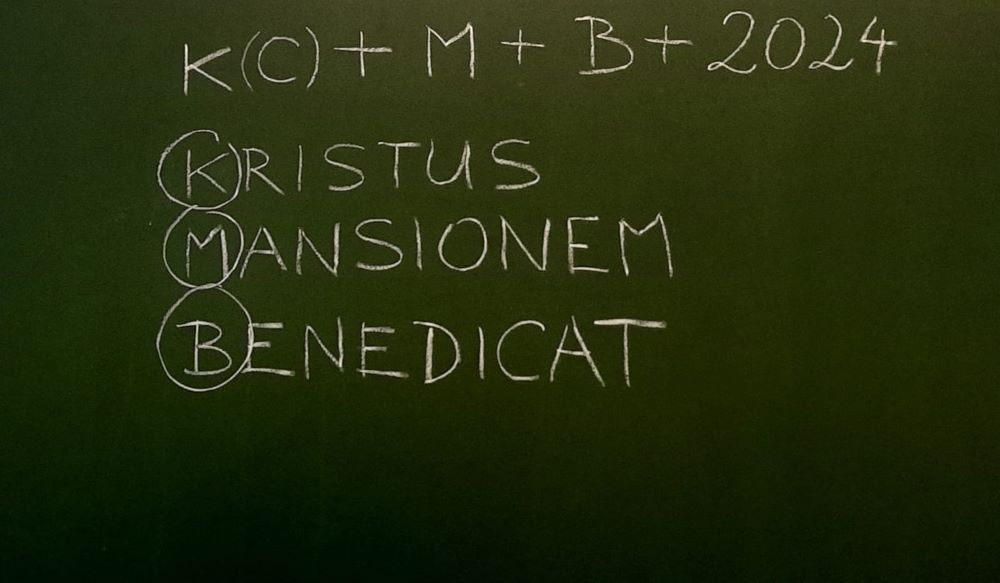 K(C) + M + B + 2024
KRISTUS
MANSIONEM
BENEDICAT